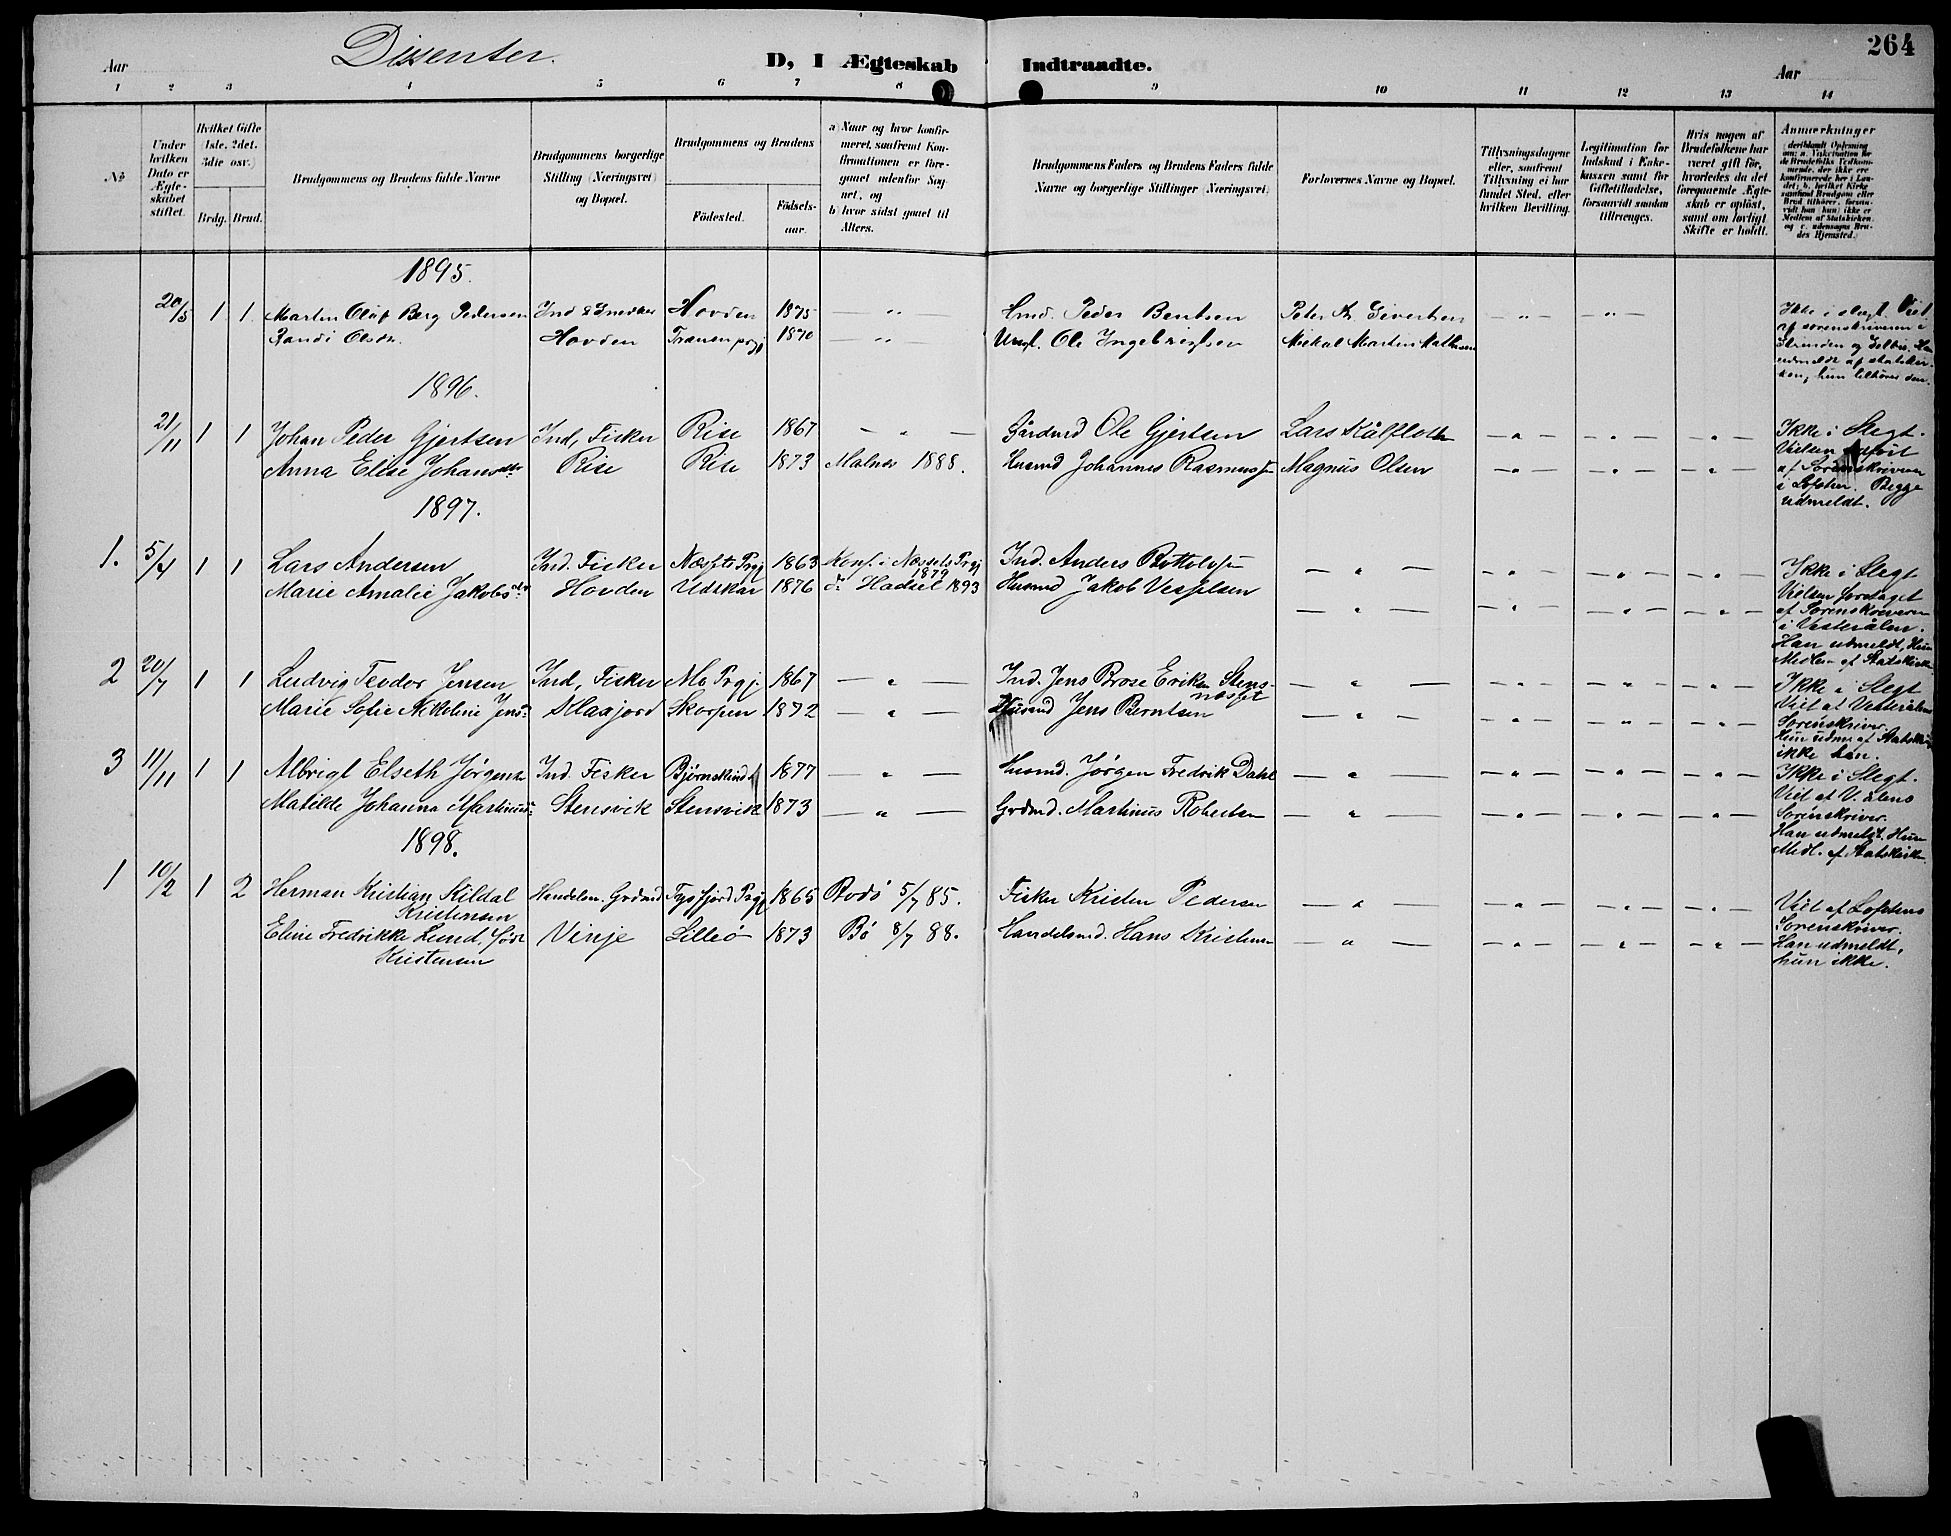 264
Dissenter.
Aar
D, I Ægteskab Indtraadte.
Aar
1 2 3 4 5 6 7 8 9 10 11 12 13 14
No
Under hvilken Dato er Ægteskabet stiftet.
Hvilket Gifte (1ste, 2det, 3die osv.)
Brdg. Brud.
Brudgommens og Brudens fulde Navne
Brudgommens borgerlige Stilling (Næringsvei) og Bopæl.
Brudgommens og Brudens
Fødested.
Fødselsaar.
a) Naar og hvor konfirmeret, samfremt Konfirmationen er foregaaet udenfor Sognet, og
b) hvor sidst gaaet til Alters.
Brudgommens Faders og Brudens Faders fulde Navne og borgerlige Stillinger (Næringsvei)
Forlovernes Navne og Bopæl.
Tillysningsdagene eller, samfremt Tillysning ei har fundet Sted, efter hvilken Bevilling.
Legitimation for Indskud i Enkekassen samt for Giftetilladelse, forsaavidt saadan tiltrænges.
Hvis nogen af Brudefolkene har været gift før, hvorledes da det foregaaende Ægteskab er opløst, samt om lovligt Skifte er holdt.
Anmerkninger
1895.
20/5 1 1 Martin Oluf Berg Pedersen Ind & Hovden 1875 — " — Peder Bentsen — " — — " — Ikke i slegt. Viet
Randi Olsdtr. Hovden Tranen prgj 1870 — " — Ole Ingebrigtsen Mikal Martin af sorenskriveren i
Strinden og Selbu. Han
udmeldt af statskir-
ken, hun tilhører den.
1896.
21/11 1 1 Johan Peder Gjertsen Ind, Fisker Rise 1867 — " — Gårdmd Ole Gjertsen Lars — " — — " — — " — Ikke i Slegt.
Anna Elise Johansdtr Rise Rise 1873 Malnes 1888. Husmd Johannes Rasmuss. Magnus Olsen — " — — " — — " — Vielsen
af Sorenskriveren
i Lofoten. Begge
udmeldt.
1897.
1. 5/4 1 1 Lars Andersen Ind. Fisker Prgj 1863 Konf. i Prgj 1879 Ind. Anders — " — — " — — " — — " — Ikke i Slegt
Marie Amalie Jakobsdtr Hovden Udskar 1876 do Hadsel 1893 Husmd Jakob Vesselsen — " — — " — — " — — " — Vielsen foretaget
af Sorenskriveren
i Vesterålen.
Han udmeldt, Hun
Medlem af Statskirken
2 20/7 1 1 Ludvig Teodor Jensen Ind, Fisker Mo Prgj. 1867 — " — Ind. Jens Brose Eriksen Stensnesset — " — — " — — " — — " — Ikke i Slegt
Marie Sofie Nikoline Jensd. Skorpen 1872 — " — Husmd Jens Berntsen — " — — " — — " — — " — Viet af Vesterålens
Sorenskriver.
Hun udm. af Statsk.
ikke han.
3 11/11 1 1 Albrigt Elseth Jørgensen Ind. Fisker 1877 — " — Husmd. Jørgen Fredrik Dahl — " — — " — — " — — " — Ikke i Slegt.
Matilde Johanna Martinusd. Stensvik Stensvik 1873 — " — Grdmd. Martinus Robertsen — " — — " — — " — — " — Viet af V.ålens
Sorenskriver.
Han udmeldt. Hun
Medl. af Statskirken
1898.
1 10/2 1 2 Herman Kristian Kildal Kristensen Handelsm. Grdmd Tysfjord Prgj 1865 Bodø 5/7 85. Fisker Kristen Pedersen — " — — " — — " — — " — Viet af Lofotens
Eline Fredrikke Lund, født Kristensen Vinje Lilleø 1873 Bø 8/7 88. Handelsmd. Hans Kristensen — " — — " — — " — — " — Sorenskriver.
Han udmeldt,
hun ikke.